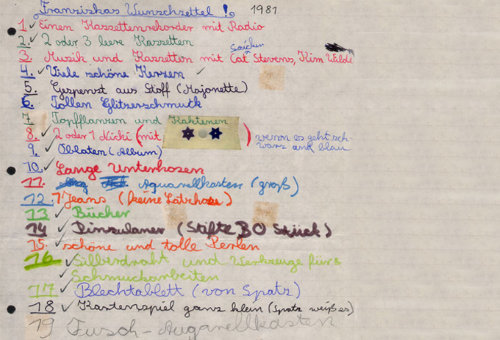 Franziskas Wunschzettel! 1981
1. Einen Kassettenrekorder mit Radio
2. ✓ 2 oder 3 leere Kassetten
3. Musik und Kassetten mit Cat Stevens, Kim Wilde
4. ✓ Viele schöne Kerzen ✓
5. Gespenst aus Stoff (Majonette)
6. Tollen Glitzerschmuck
7. Topfpflanzen und Kakteen
8. ✓ 2 oder 1 Nicki (mit ) wenn es geht sch
warz und blau
9. ✓ Oblaten (Album)
10. ✓ Lange Unterhosen
11. Aquarellkasten (groß)
12. ? Jeans (keine Latzhose)
13 ✓ Bücher
14 ✓ (Stifte 30 Stück)
15. schöne und tolle Perlen
16 ✓ Silberdraht und Werkzeuge fürs
Schmuckarbeiten
17 ✓ Blechtablett (von Spatz)
18 ✓ Kartenspiel ganz klein (Spatz weiß es)
19 Tusch-Aquarellkasten